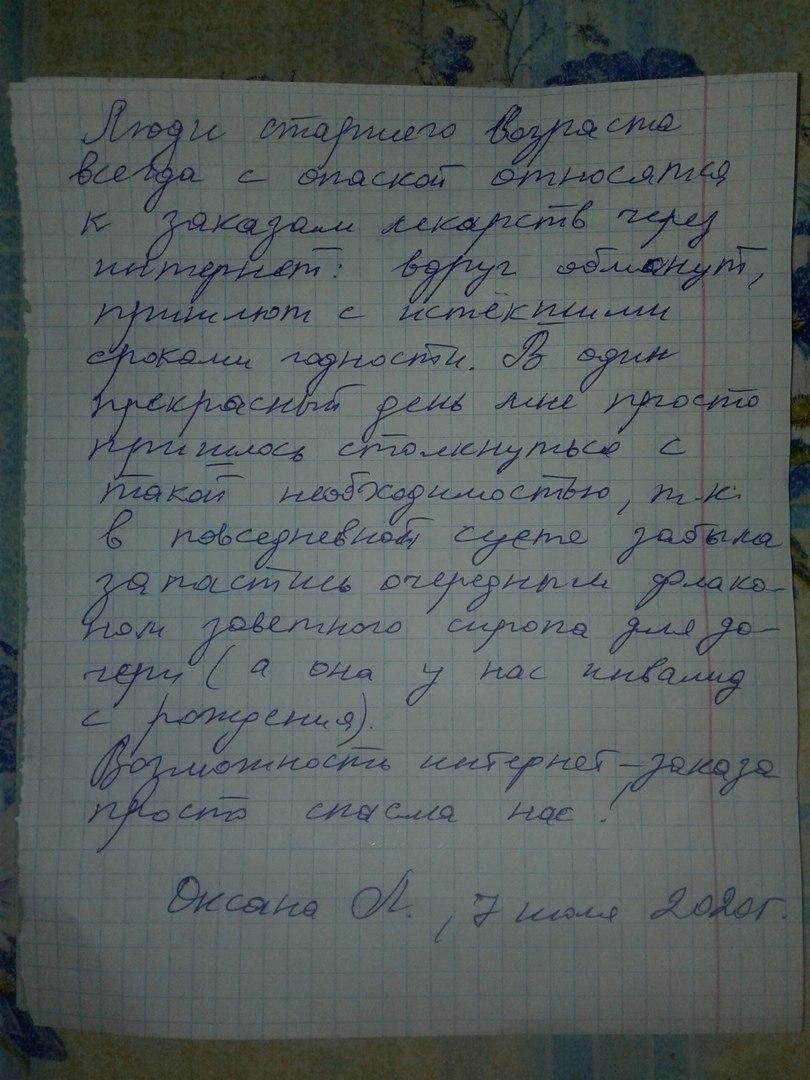 Люди старшего возраста
всегда с опаской относятся
к заказам лекарств через
интернет: вдруг обманут,
пришлют с истёкшими
сроками годности. В один
прекрасный день мне просто
пришлось столкнуться с
такой необходимостью, т.к.
в повседневной суете забыла
запастись очередным флако-
ном заветного сиропа для до-
чери (а она у нас инвалид
с рождения).
Возможность интернет-заказа
просто спасла нас!
Оксана Л., 7 июля 2020г.